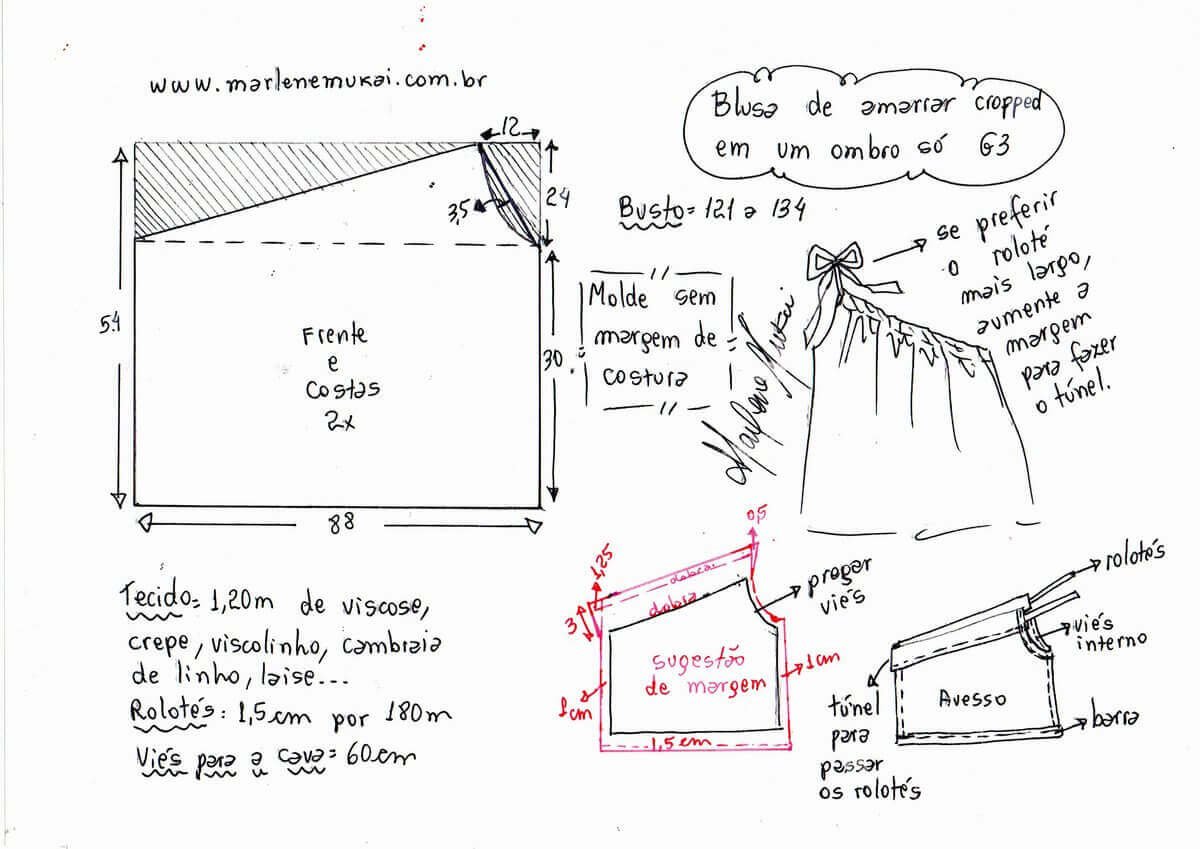 www.marlenemukai.com.br
Blusa de amarrar cropped
em um ombro só G3
12
24
3,5
54
30
88
Frente
e
Costas
2x
Busto = 121 a 134
Molde sem
margem de
costura
Marlene Mukai
se preferir
o roloté
mais largo,
aumente a
margem
para fazer
o túnel.
Tecido = 1,20m de viscose,
crepe, viscolinho, cambraia
de linho, laise...
Rolotés: 1,5cm por 180m
Viés para a cava = 60cm
0,5
1,25
3
dobra
dobra
pregar
viés
sugestão
de margem
1cm
1cm
1,5cm
rolotés
viés
interno
Avesso
barra
túnel
para
passar
os rolotés